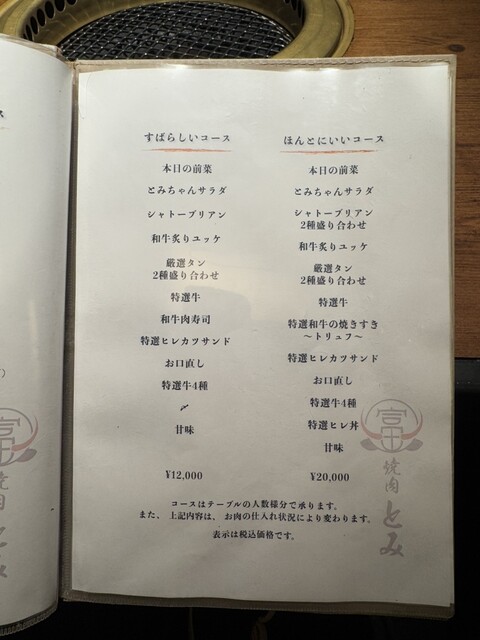 すばらしいコース
本日の前菜
とみちゃんサラダ
シャトーブリアン
和牛炙りユッケ
厳選タン
2種盛り合わせ
特選牛
和牛肉寿司
特選ヒレカツサンド
お口直し
特選牛4種
〆
甘味
¥12,000
ほんとにいいコース
本日の前菜
とみちゃんサラダ
シャトーブリアン
2種盛り合わせ
和牛炙りユッケ
厳選タン
2種盛り合わせ
特選牛
特選和牛の焼きすき
〜トリュフ〜
特選ヒレカツサンド
お口直し
特選牛4種
特選ヒレ丼
甘味
¥20,000
コースはテーブルの人数様分で承ります。
また、上記内容は、お肉の仕入れ状況により変わります。
表示は税込価格です。
富
焼肉
とみ